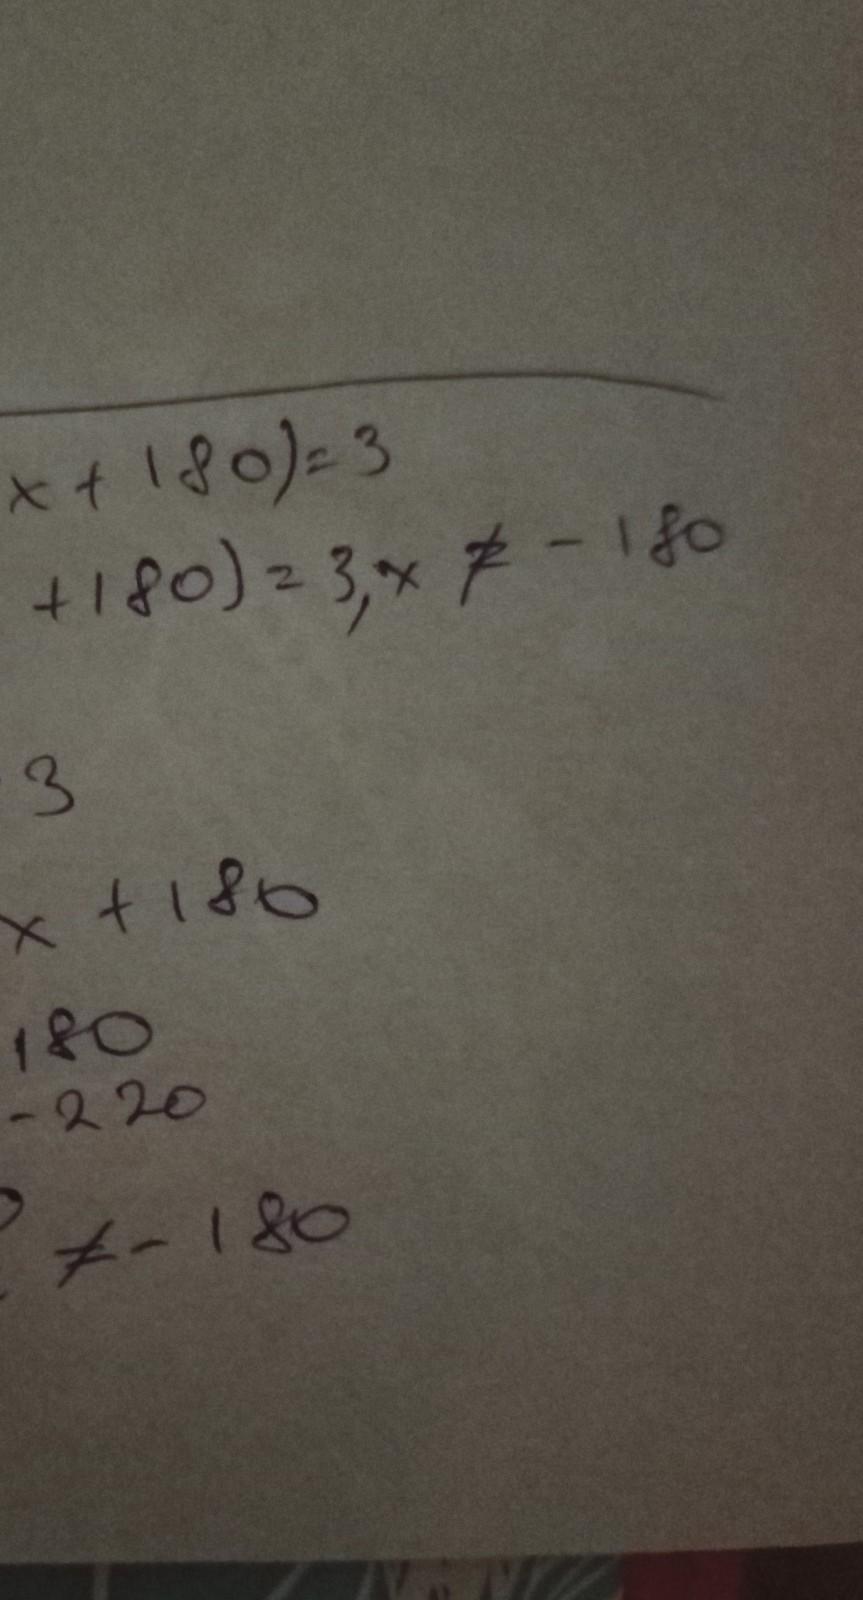 x + 180) = 3
+ 180) = 3, x ≠ - 180
3
x + 180
180
- 220
≠ - 180